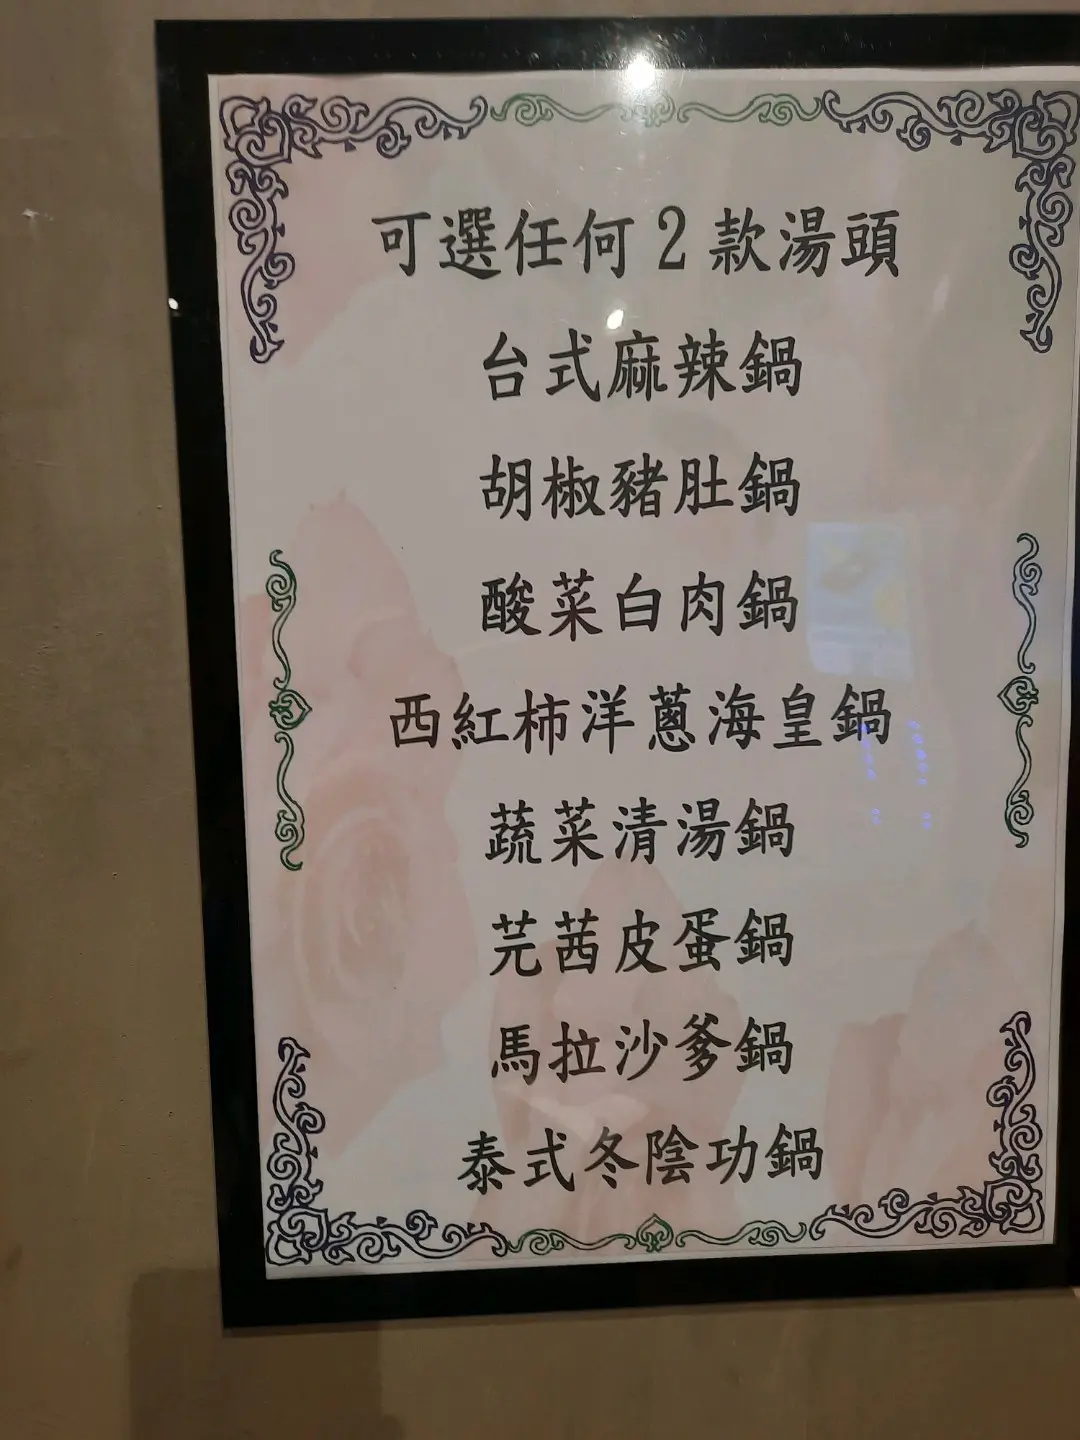 可選任何2款湯頭
台式麻辣鍋
胡椒豬肚鍋
酸菜白肉鍋
西紅柿洋蔥海皇鍋
蔬菜清湯鍋
芫茜皮蛋鍋
馬拉沙爹鍋
泰式冬陰功鍋